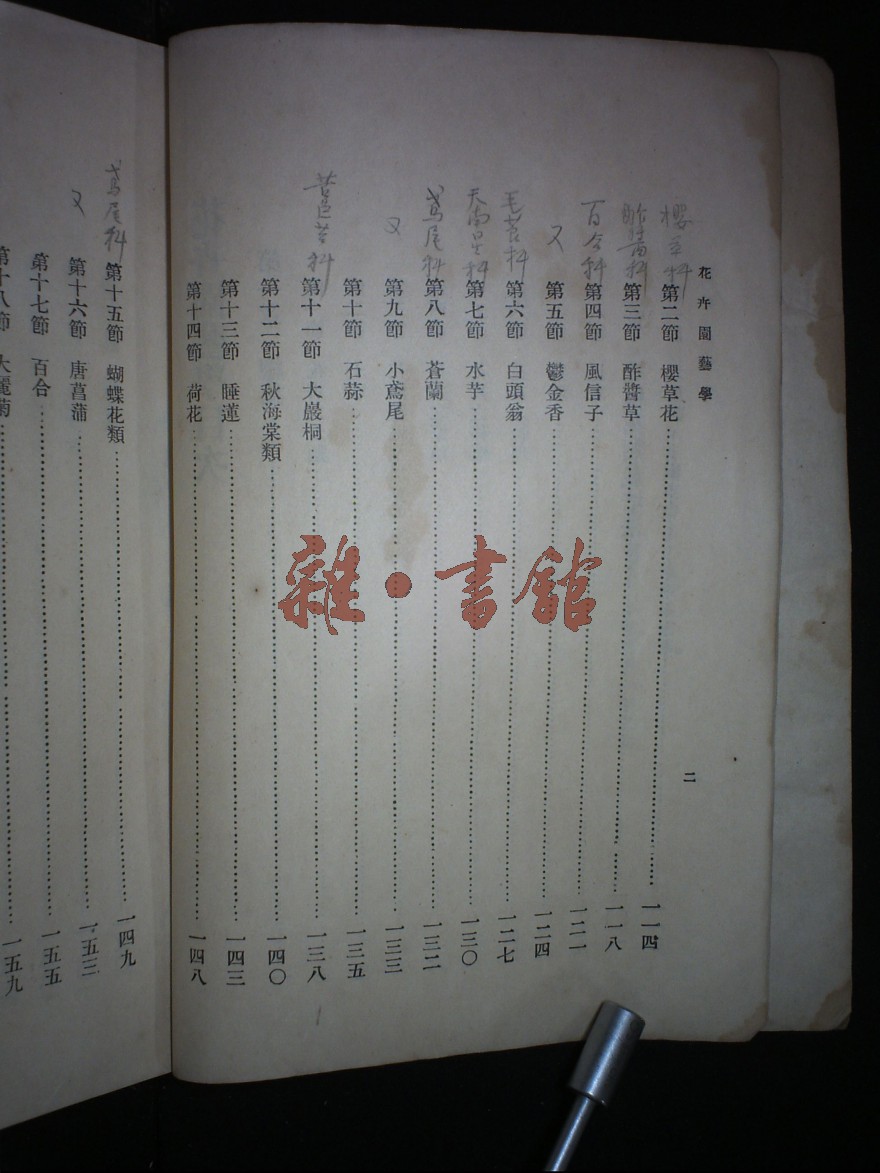 花卉園藝學
二
櫻草科
第二節 櫻草花 一一四
酢醬科
第三節 酢醬草 一一八
百合科
第四節 風信子 一二一
又
第五節 鬱金香 一二四
毛茛科
第六節 白頭翁 一二七
天南星科
第七節 水芋 一三〇
鳶尾科
第八節 蒼蘭 一三二
又
第九節 小鳶尾 一三三
第十節 石蒜 一三五
苦苣苔科
第十一節 大巖桐 一三八
第十二節 秋海棠類 一四〇
第十三節 睡蓮 一四三
第十四節 荷花 一四八
鳶尾科
第十五節 蝴蝶花類 一四九
又
第十六節 唐菖蒲 一五三
第十七節 百合 一五五
第十八節 大麗菊 一五九
雜·書館